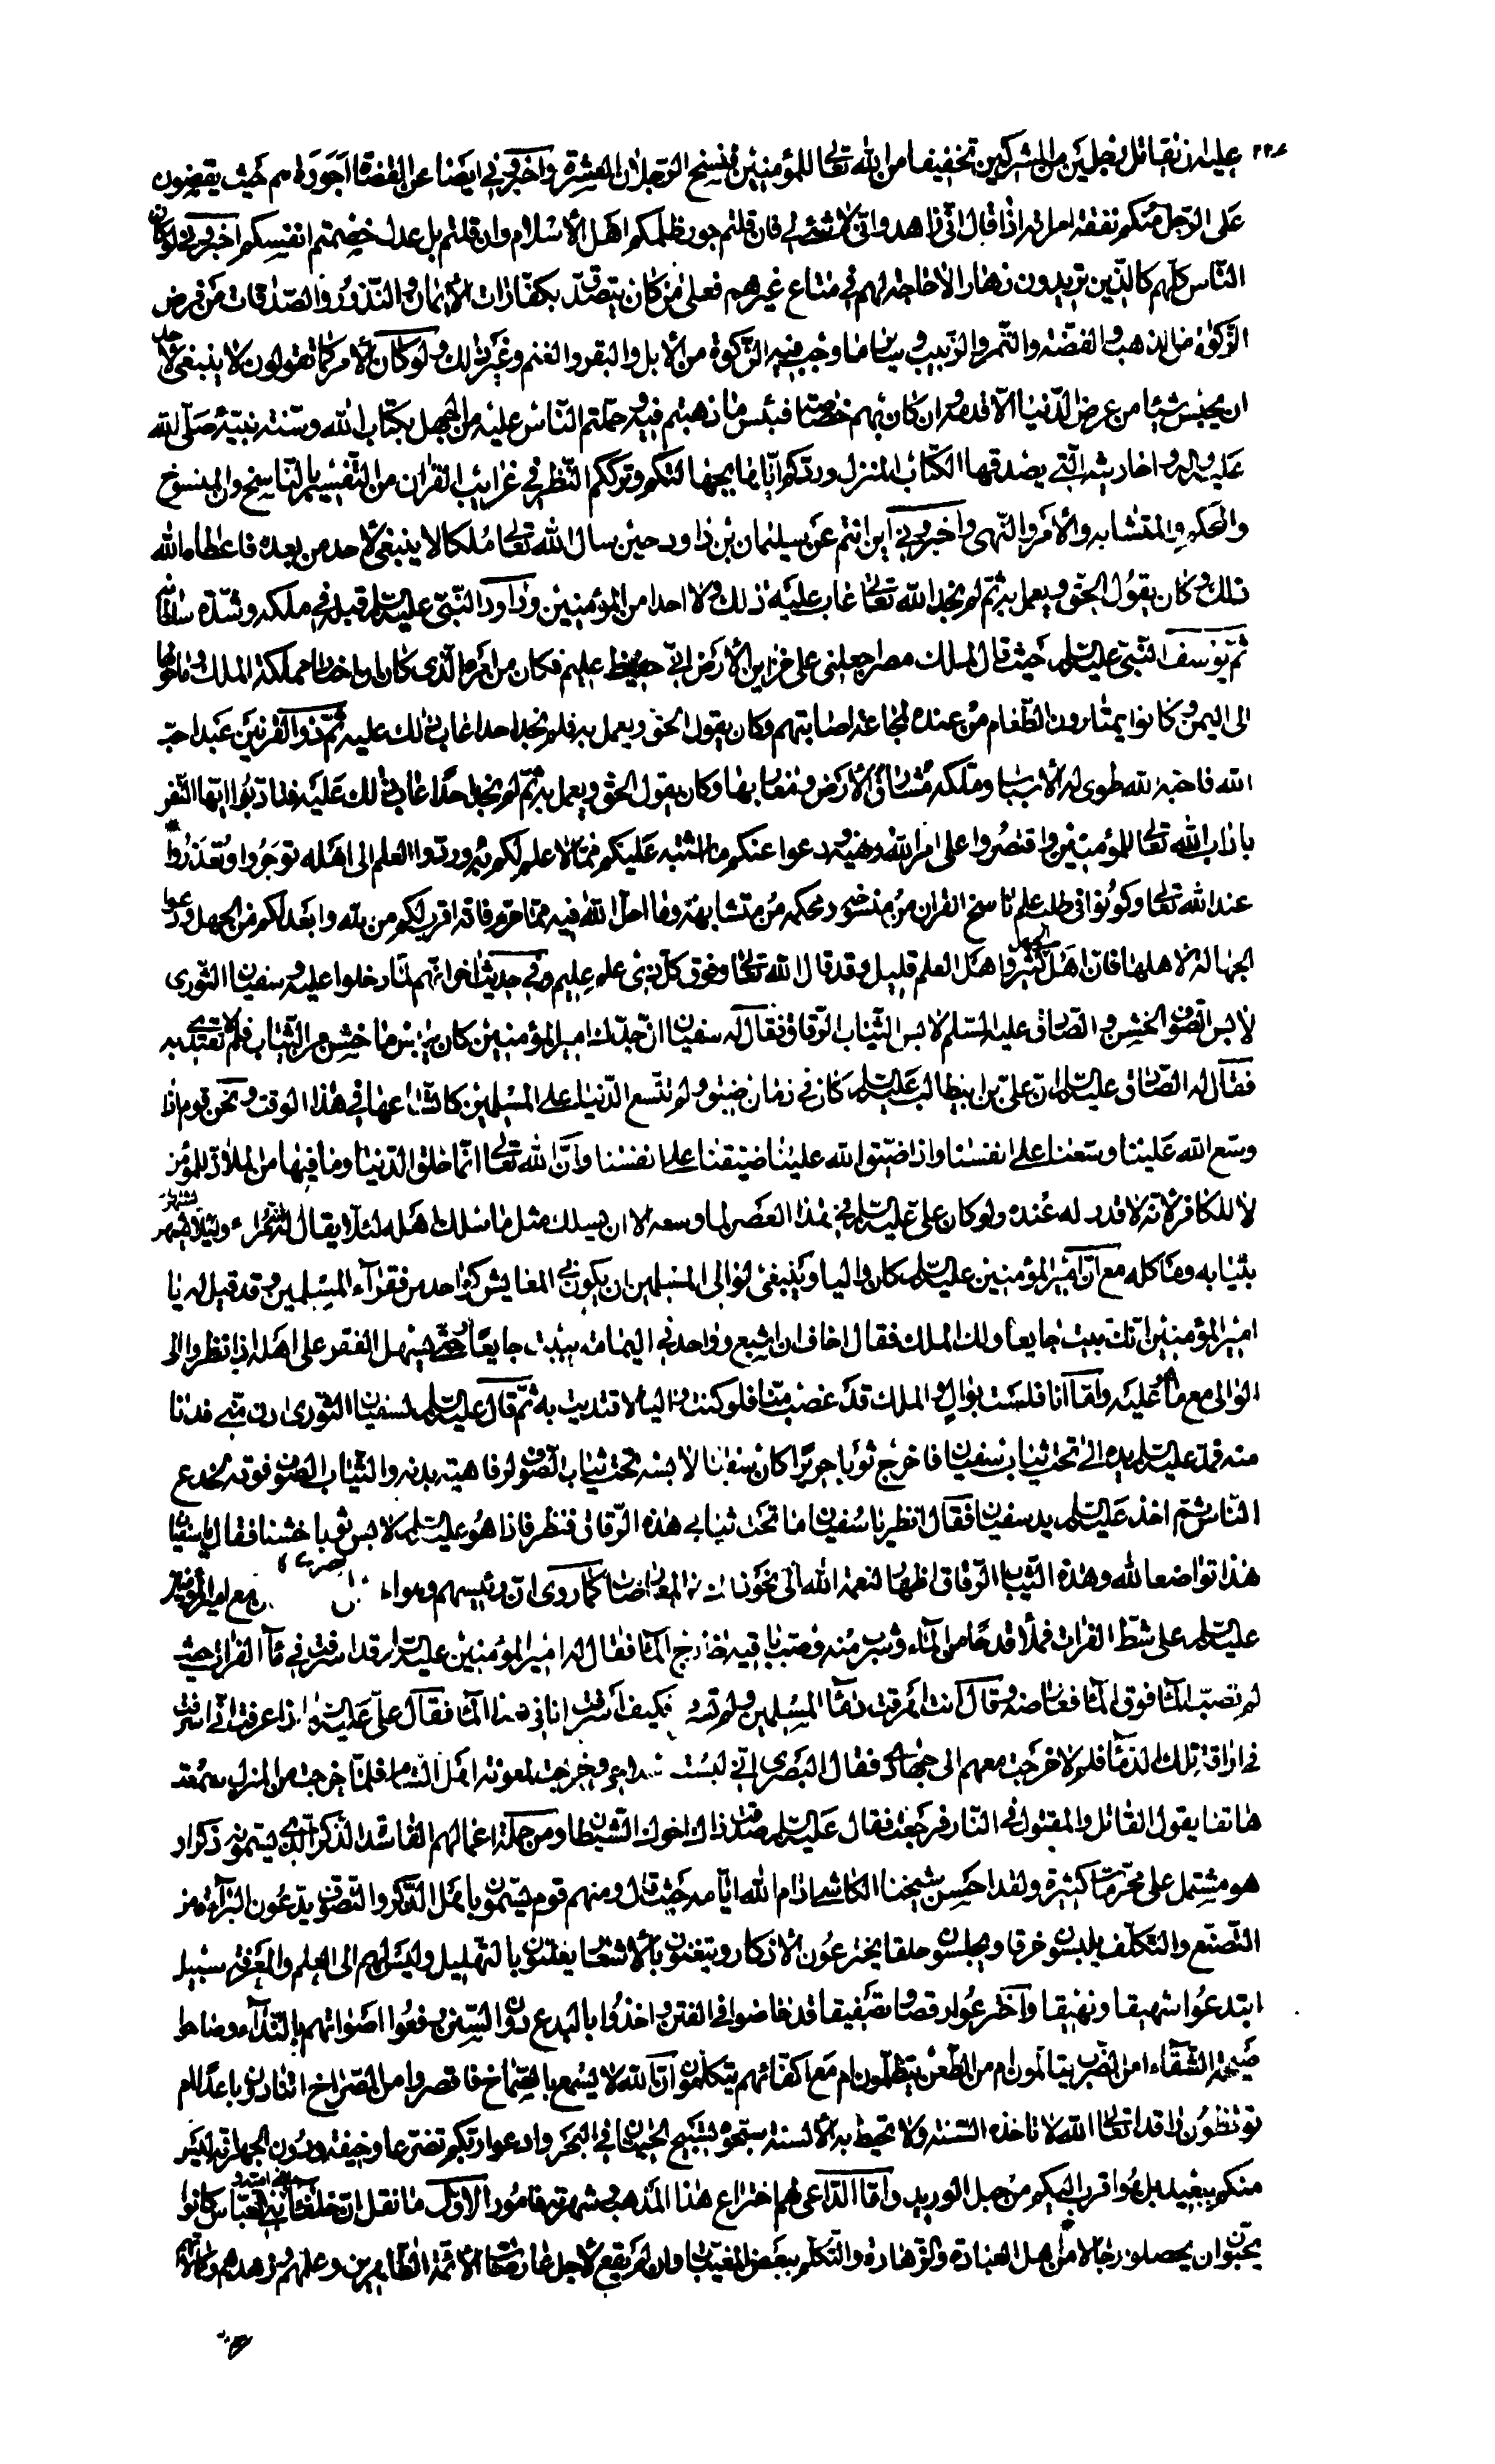 عليه ان يقاتل رجلين من المشركين تخفيفا من الله تعالى للمؤمنين فنسخ الرجلان العشرة واخبروني ايضا عن القضاة اجورة هم حيث يقضون
على الرجل منكم نفقة امراته اذا قال انّي زاهد وانّي لا شئ لي فان قلتم جور ظلمكم اهل الاسلام وان قلتم بل عدل خصمتم انفسكم اخبروني لو كان
النّاس كلّهم كالّذين تريدون زهّادا لا حاجة لهم في متاع غيرهم فعلى من كان يتصدّق بكفّارات الايمان والنّذور والصّدقات من فرض
الزكوة من الذهب والفضّة والتّمر والزبيب وسائر ما وجب فيه الزّكوة من الابل والبقر والغنم وغير ذلك ولو كان الامر كما تقولون لا ينبغي لاحد
ان يحبس شيئا من عرض الدّنيا الّا قدمه وان كان بهم خصاصة فبئس ما ذهبتم فيه وحملتم النّاس عليه من الجهل بكتاب الله وسنّة نبيّه صلّى الله
عليه واله واحاديثه الّتي يصدقها الكتاب المنزل وردّكم ايّاها بجهالتكم وترككم النّظر في غرايب القران من التّفسير بالنّاسخ والمنسوخ
والمحكم والمتشابه والامر والنّهى واخبروني اين انتم عن سليمان بن داود حين سال الله تعالى ملكا لا ينبغي لاحد من بعده فاعطاه الله
ذلك وكان يقول الحقّ ويعمل به ثمّ لم نجد الله تعالى عاب عليه ذلك ولا احدا من المؤمنين وداود النّبيّ عليه السلم قبله في ملكه وشدّة سلطانه
ثمّ يوسف النّبيّ عليه السلم حيث قال لملك مصر اجعلني على خزاين الارض انّي حفيظ عليم فكان من امره الّذى كان ان اختار مملكة الملك وما حولها
الى اليمن وكانوا يمتارون الطّعام من عنده لمجاعة اصابتهم وكان يقول الحقّ ويعمل به فلم نجد احدا عاب ذلك عليه ثمّ ذو القرنين عبد احبّ
الله فاحبّه الله طوى له الاسباب وملّكه مشارق الارض ومغاربها وكان يقول الحق ويعمل به ثمّ لم نجد احدا عاب ذلك عليه فتادّبوا ايّها النّفر
باداب الله تعالى للمؤمنين واقتصروا على امر الله ونهيه ودعوا عنكم ما اشتبه عليكم ممّا لا علم لكم به وردّوا العلم الى اهله توجروا وتعذروا
عند الله تعالى وكونوا في طلب علم ناسخ القران من منسوخه ومحكمه من متشابهه وما احلّ الله فيه ممّا حرّم فانّه اقرب لكم من الله وابعد لكم من الجهل ودعوا
الجهالة لاهلها فانّ اهل الجهل كثير واهل العلم قليل وقد قال الله تعالى وفوق كلّ ذي علم عليم وفي حديث اخر انّهم لمّا دخلوا عليه وسفيان الثّورى
لابس الصّوف الخشن والصّادق عليه السّلم لابس الثّياب الرّقاق فقال له سفيان انّ جدّك امير المؤمنين كان يلبس ما خشن من الثّياب فلم لا تقتدى به
فقال له الصّادق عليه السلم انّ عليّ بن ابيطالب عليه السلم كان في زمان ضيق ولم تتّسع الدّنيا على المسلمين كاتّساعها في هذا الوقت ونحن قوم اذا
وسّع الله علينا وسّعنا على انفسنا واذا ضيّق الله علينا ضيّقنا على انفسنا وانّ الله تعالى انّما خلق الدّنيا وما فيها من الملاذّ للمؤمن
لا للكافر لانّه لا قدر له عنده ولو كان عليّ عليه السلم في هذا العصر لما وسعه الا ان يسلك مثل ما سلك اهله لئلّا يقال له انّه مراء ولئلّا يشتهر
بثيابه ومأكله مع انّ امير المؤمنين عليه السلم كان واليا وينبغي لوالي المسلمين ان يكون في المعايش كواحد من فقراء المسلمين وقد قيل له يا
امير المؤمنين انّك تبيت جايعا ولك الملك فقال اخاف ان اشبع وواحد في اليمامة يبيت جايعا حتّى يسهل الفقر على اهله اذا نظروا الى
الوالى مع ما عليه وامّا انا فلست بوال والملك قد غصب منّا فلو كنت واليا لاقتديت به ثمّ قال عليه السلم لسفيان الثّورى ادن منّي فدنا
منه فمدّ عليه السلم يده الى تحت ثياب سفيان فاخرج ثوبا حريرا كان سفيان لابسه تحت ثياب الصّوف لرفاهية بدنه والثّياب الصّوف فوقه ليخدع
النّاس ثمّ اخذ عليه السلم يد سفيان فقال انظر يا سفيان ما تحت ثيابي هذه الرّقاق فنظر فاذا هو عليه السلم لابس ثوبا خشنا فقال يا سفيان
هذا تواضعا لله وهذه الثّياب الرّقاق اظهارا لنعمة الله الى نحو ذلك من المعارضات كما روى انّ رئيسهم وهو البصرى كان مع امير المؤمنين
عليه السلم على شطّ الفرات فملأ قدحا من الماء وشرب منه وصبّ باقيه خارج الماء فقال له امير المؤمنين عليه السلم قد اسرفت في ماء الفرات حيث
لم تصبّ الماء فوق الماء فعارضه وقال انت اهرقت دماء المسلمين ولم تسرف فكيف اسرفت انا في هذا الماء فقال عليّ عليه السلم اذا عرفت انّي اسرفت
في اراقة تلك الدّماء فلم لا خرجت معهم الى جهادى فقال البصرى انّي لبست سلاحي وخرجت لمعونة اهل الشام فلمّا خرجت من المنزل سمعت
هاتفا يقول القاتل والمقتول في النّار فرجعت فقال عليه السلم صدقت ذاك اخوك الشّيطان ومن جملة اعمالهم الفاسد الذّكر الّذى يسمّونه ذكرا و
هو مشتمل على محرّمات كثيرة ولقد احسن شيخنا الكاشي ادام الله ايّامه حيث قال ومنهم قوم يسمّون باهل الذّكر والتّصوّف يدّعون البرآءة من
التّصنّع والتّكلّف يلبسون خرقا ويجلسون حلقا يخترعون الاذكار ويتغنّون بالاشعار يعلنون بالتّهليل وليس لهم الى العلم والمعرفة سبيل
ابتدعوا شهيقا ونهيقا واخترعوا رقصا وتصفيقا قد خاضوا في الفتن واخذوا بالبدع دون السّنن رفعوا اصواتهم بالنّدآء وصاحوا
صيحة الشّقاء امن الضّرب يتالّمون ام من الطّعن يتظلّمون ام مع اكفّائهم يتكلّمون انّ الله لا يسمع بالصّماخ فاقصروا من الصّراخ اتنادون باعدا ام
توقظون راقدا تعالى الله لا تاخذه السّنة ولا تحيط به الالسنة سبّحوا تسبيح الحيتان في البحر وادعوا ربّكم تضرّعا وخيفة ودون الجهر انّه ليس
منكم ببعيد بل هو اقرب اليكم من حبل الوريد وامّا الدّاعي لهم اختراع هذا المذهب وشهرته فامور الاوّل ما نقل انّ خلفاء بني اميّة وبني العبّاس كانوا
يحبّون ان يحصلوا رجالا من اهل العبادة والزّهادة والتّكلّم ببعض المغيّبات وان لم يقع لاجل معارضة الائمّة الطّاهرين وعلمهم وزهدهم وكمالاتهم